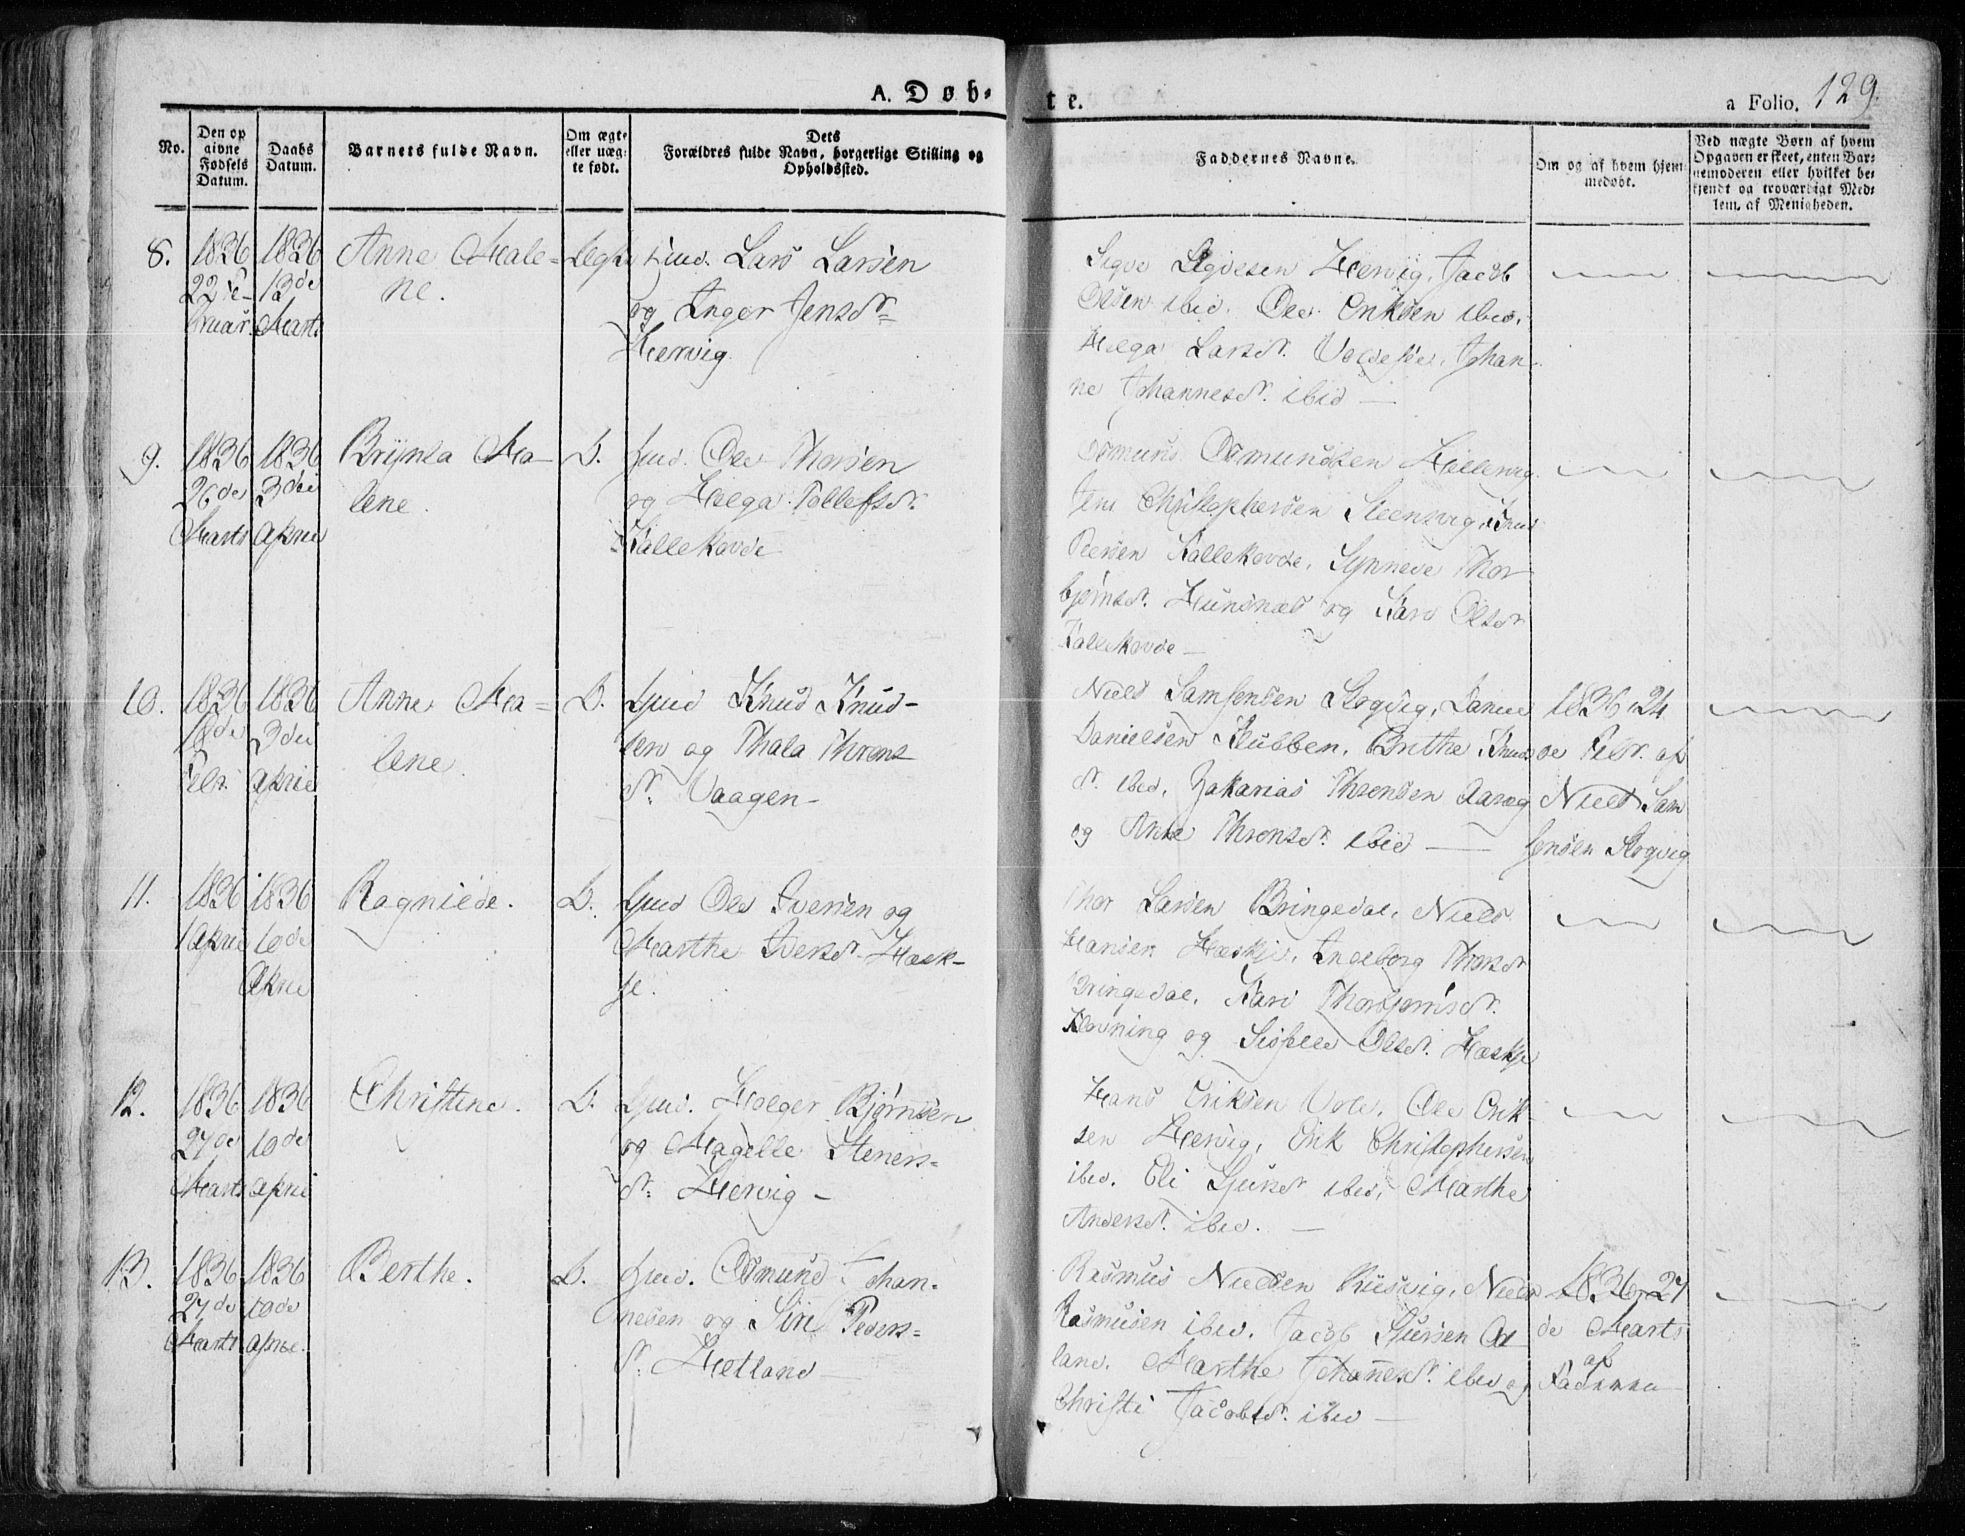 A. Døbte. a Folio. 129.
No.
Den op
givne
Fødsels
Datum.
Daabs
Datum.
Barnets fulde Navn.
Om ægte
eller uæg:
te født.
Dets
Forældres fulde Navn, borgerlige Stilling og
Opholdssted.
Faddernes Navne.
Om og af hvem hjem:
medøbt.
Ved uægte Børn af hvem
Opgaven er skeet, enten Bar:
nemoderen eller hvilket be:
kjendt og troværdigt Med:
lem af Menigheden.
8.
1836
22 Fe-
bruar.
1836
13de
Marts
Anne Male=
ne.
Ægte
Lars Larsen
og Inger Jensdr=
Hervig.
Hervig, Jacob
Olsen ibid. Ole Eriksen ibid.
Helga Larsdr. Johan-
ne Johannesdr. ibid —
9.
1836
26de
Marts
1836
3die
April
Ma-
lene.
D.
Gmd. Ole Thorsen
og Helga Tollefsdr.
Kallekodde
Osmund Osmundsen
Jens Christophersen Steensvig, Knud
Peersen Kallekodde, Synneve Thor
bjørnsdr. Hunsnæs og Kari Olsdr
Kallekodde —
10.
1836
18de
Febr.
1836
3die
April
Anne Ma=
lene.
D.
Gmd Knud Knud-
sen og Thala Throns
dr. Vaagen-
Niels Samsonsen Daniel
Danielsen Klubben, Brithe Knuds
dr. ibid, Zakarias Thronsen
og Anne Thronsdr. ibid —
1836 24
de Febr. af
Niels Sam
sonsen
11.
1836
1 April
1836
10de
April
Ragnilde.
D.
Gmd Ole Iversen og
Marthe Iversdr. Hæsk-
je.
Thor Larsen Bringedal, Niels
Hansen Hæskje, Ingeborg Thorsdr
Bringedal, Kari Thorbjørnsdr.
og Sissele Olsdr. Hæskje
12.
1836
27de
Marts
1836
10de
April
Christine.
D.
Gmd. Holger Bjørnsen
og Magelle Steners=
dr. Hervig -
Hans Eriksen Ole Erik
sen Hervig, Erik Christophersen
ibid. Eli Sjursdr ibid, Marthe
Andersdr. ibid. —
13.
1836
27de
Marts
1836
10de
April.
Berthe.
D.
Gmd. Osmund Johan-
nesen og Siri Peders=
dr. Hetland —
Rasmus Nielsen Niels
Rasmusen ibid. Jacob Sjursen
Marthe Johannesdr. ibid og
Christi Jacobsdr. ibid —
1836, 27
de Marts
af
Faderen